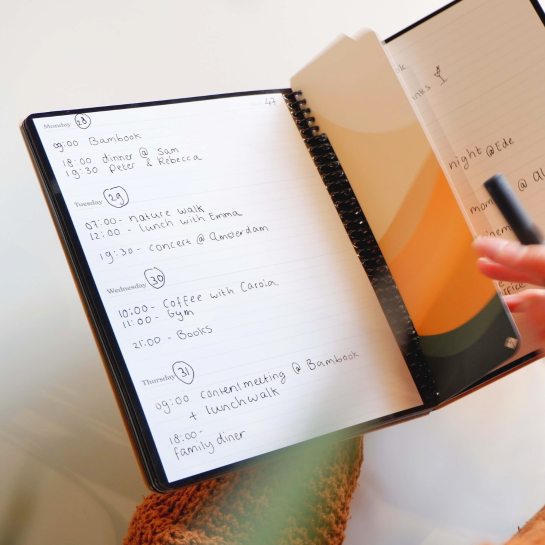 47
Monday 28
09:00 Bambook
18:00 dinner @ Sam
19:30 Peter & Rebecca
Tuesday 29
07:00- nature walk
12:00 - lunch with Emma
19:30 - concert @ Amsterdam
Wednesday 30
10:00 - Coffee with Carola
11:00 - Gym
21:00 - Books
Thursday 31
09:00 contentmeeting @ Bambook
+ lunchwalk
18:00-
family diner
night @ Ede
@